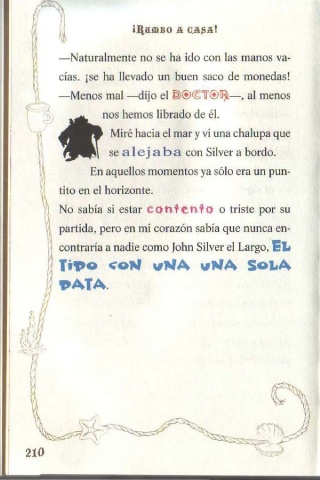 ¡RUMBO A CASA!
—Naturalmente no se ha ido con las manos va-
cías. ¡se ha llevado un buen saco de monedas!
—Menos mal —dijo el DOCTOR—, al menos
nos hemos librado de él.
Miré hacia el mar y vi una chalupa que
se alejaba con Silver a bordo.
En aquellos momentos ya sólo era un pun-
tito en el horizonte.
No sabía si estar contento o triste por su
partida, pero en mi corazón sabía que nunca en-
contraría a nadie como John Silver el Largo, EL
TIPO CON UNA UNA SOLA
PATA.
210